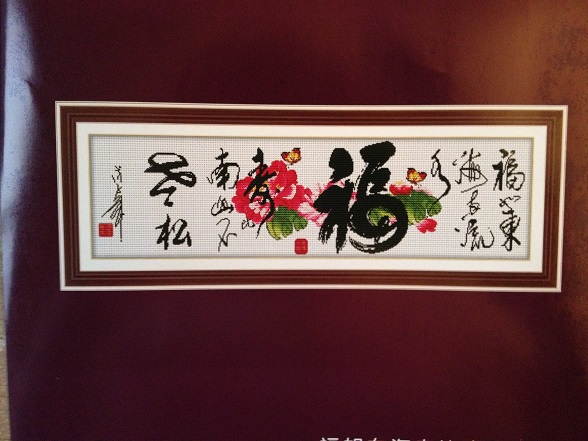 福如東
海長流
水
福
壽比
南山不
老松